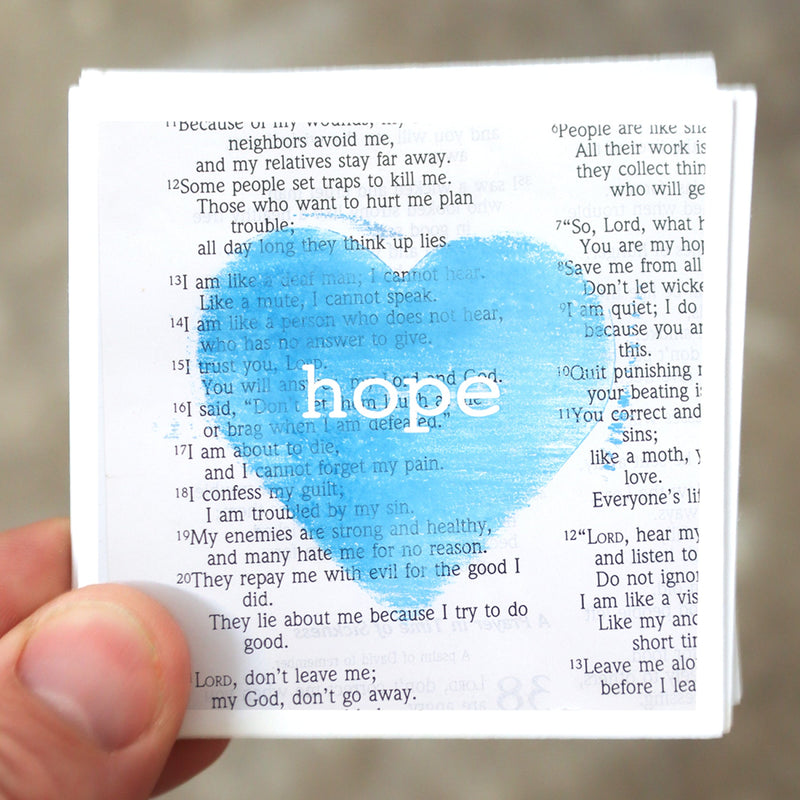 11Because of my wounds, my
neighbors avoid me,
and my relatives stay far away.
12Some people set traps to kill me.
Those who want to hurt me plan
trouble;
all day long they think up lies.
13I am like a deaf man; I cannot hear.
Like a mute, I cannot speak.
14I am like a person who does not hear,
who has no answer to give.
15I trust you, LORD.
You will answer, my Lord and God.
16I said, "Don't let them laugh at me
or brag when I am defeated."
17I am about to die,
and I cannot forget my pain.
18I confess my guilt;
I am troubled by my sin.
19My enemies are strong and healthy,
and many hate me for no reason.
20They repay me with evil for the good I
did.
They lie about me because I try to do
good.
LORD, don't leave me;
my God, don't go away.
hope
6People are like sha
All their work is
they collect thin
who will ge
7"So, Lord, what h
You are my hop
8Save me from all
Don't let wicke
9I am quiet; I do
because you ar
this.
10Quit punishing
your beating is
11You correct and
sins;
like a moth, y
love.
Everyone's lif
12"LORD, hear my
and listen to
Do not ignor
I am like a vis
Like my anc
short tim
13Leave me alo
before I lea